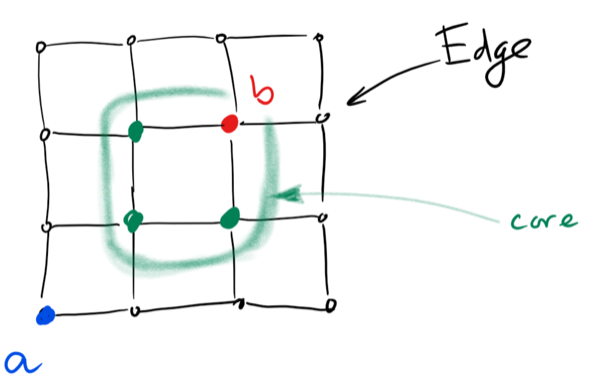 Edge
b
core
a